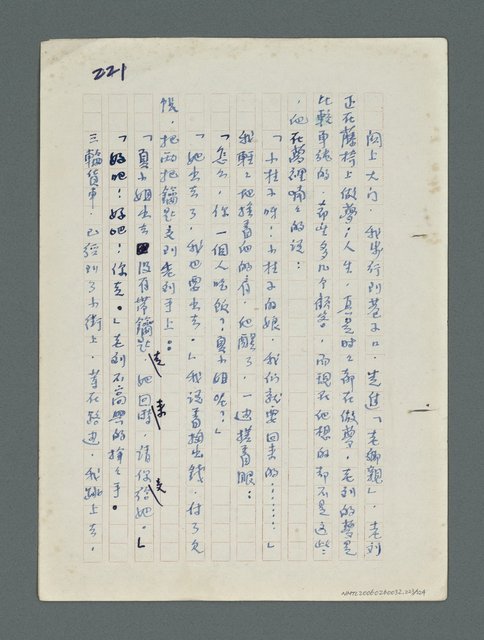 221
關上大门，我步行到巷子口，先進「老鄉親」，老劉
正在藤椅上做夢；人生，真是時時都在做夢，老劉的夢是
比較東張的，都好多几个颜色，而現在他想的却不是这些：
，他在夢裡喃喃的說：
「小柱子呀！小柱子的娘，我们就要回来的……」
我輕輕地推着他的肩，他醒了，一边揉着眼：
「怎么，你一個人吃飯？夏小姐呢？」
「她出去了，我也要出去。」我說着掏出錢，付了兌
賬，把两把鑰匙交到老劉手上：
「夏小姐出去没有帶鑰匙，她回来時，請你交给她。」
「好吧！好吧！你走。」老劉不高興的揮揮手。
三輪貨車，已經到了小街上，等在路边，我跳上去，
NMTL20060260032.223/424